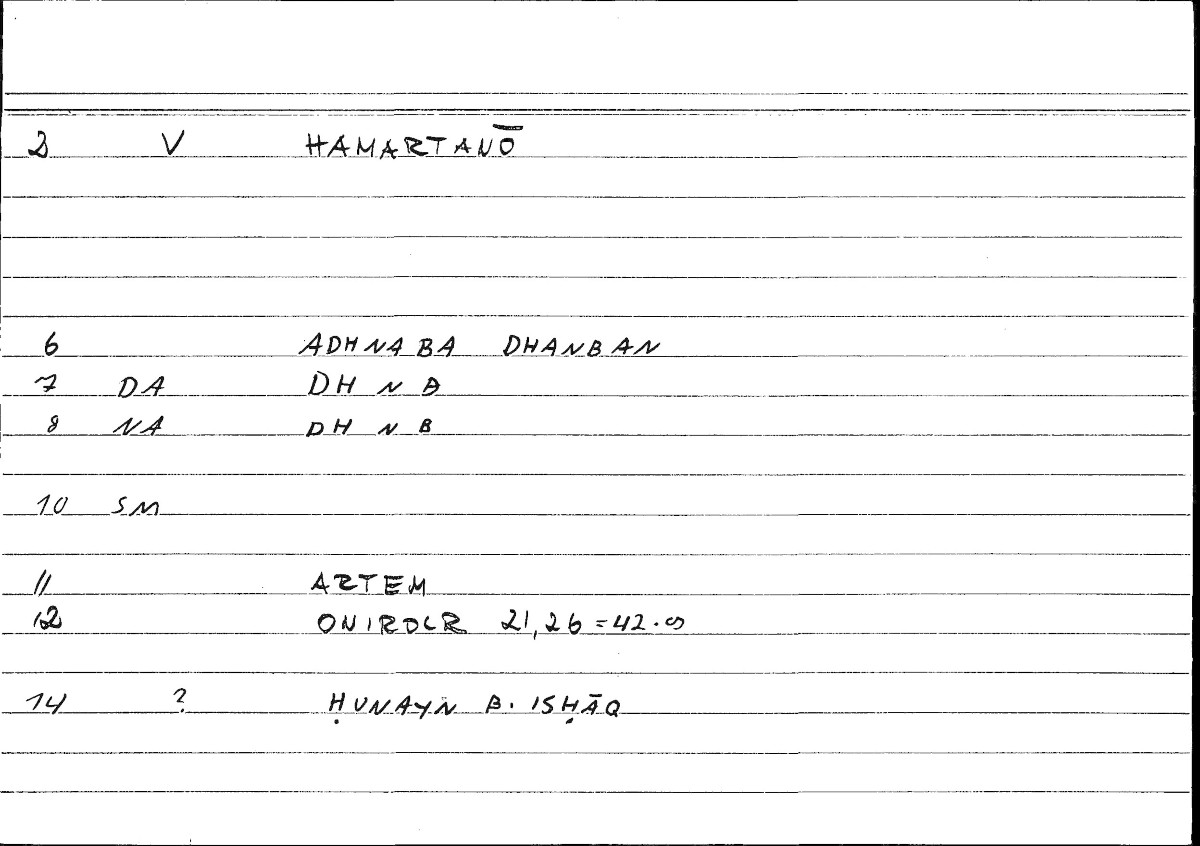 2 V HAMARTANŌ
6 ADHNABA DHANBAN
7 DA DH N B
8 NA DH N B
10 SM
11 ARTEM
12 ONIROCR 21,26 = 42.
14 ? ḤUNAYN B. ISḤĀQ